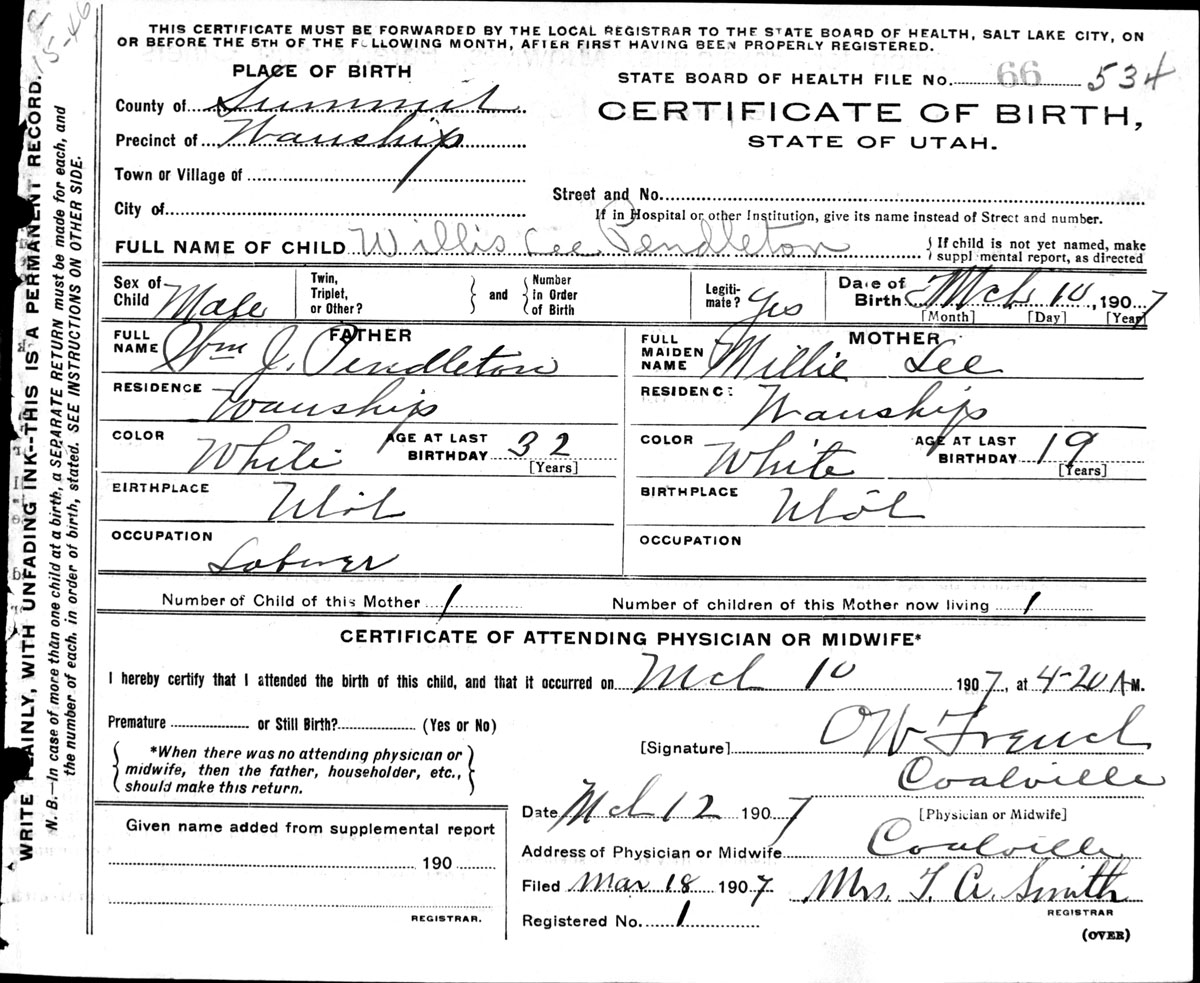 THIS CERTIFICATE MUST BE FORWARDED BY THE LOCAL REGISTRAR TO THE STATE BOARD OF HEALTH, SALT LAKE CITY, ON
OR BEFORE THE 5TH OF THE FOLLOWING MONTH, AFTER FIRST HAVING BEEN PROPERLY REGISTERED.
15-46
WRITE PLAINLY, WITH UNFADING INK--THIS IS A PERMANENT RECORD.
N. B.—In case of more than one child at a birth, a SEPARATE RETURN must be made for each, and
the number of each, in order of birth, stated. SEE INSTRUCTIONS ON OTHER SIDE.
PLACE OF BIRTH
STATE BOARD OF HEALTH FILE No. 66 534
County of Summit
CERTIFICATE OF BIRTH,
Precinct of Wanship
STATE OF UTAH.
Town or Village of
Street and No.
City of
If in Hospital or other Institution, give its name instead of Street and number.
FULL NAME OF CHILD Willis Lee Pendleton
If child is not yet named, make
supplemental report, as directed
Sex of Child Male
Twin, Triplet, or Other?
and
Number in Order of Birth
Legitimate? Yes
Date of Birth Mch 10, 1907
[Month] [Day] [Year]
FATHER
FULL NAME Wm J. Pendleton
RESIDENCE Wanship
COLOR White AGE AT LAST BIRTHDAY 32 [Years]
BIRTHPLACE Utah
OCCUPATION Laborer
MOTHER
FULL MAIDEN NAME Millie Lee
RESIDENCE Wanship
COLOR White AGE AT LAST BIRTHDAY 19 [Years]
BIRTHPLACE Utah
OCCUPATION
Number of Child of this Mother 1 Number of children of this Mother now living 1
CERTIFICATE OF ATTENDING PHYSICIAN OR MIDWIFE*
I hereby certify that I attended the birth of this child, and that it occurred on Mch 10 1907, at 4-20 A M.
Premature or Still Birth? (Yes or No)
*When there was no attending physician or
midwife, then the father, householder, etc.,
should make this return.
[Signature] O W French
Coalville
[Physician or Midwife]
Date Mch 12 1907
Address of Physician or Midwife Coalville
Filed Mar 18 1907 Mrs. T. A. Smith
REGISTRAR
Registered No. 1
(OVER)
Given name added from supplemental report
190
REGISTRAR.